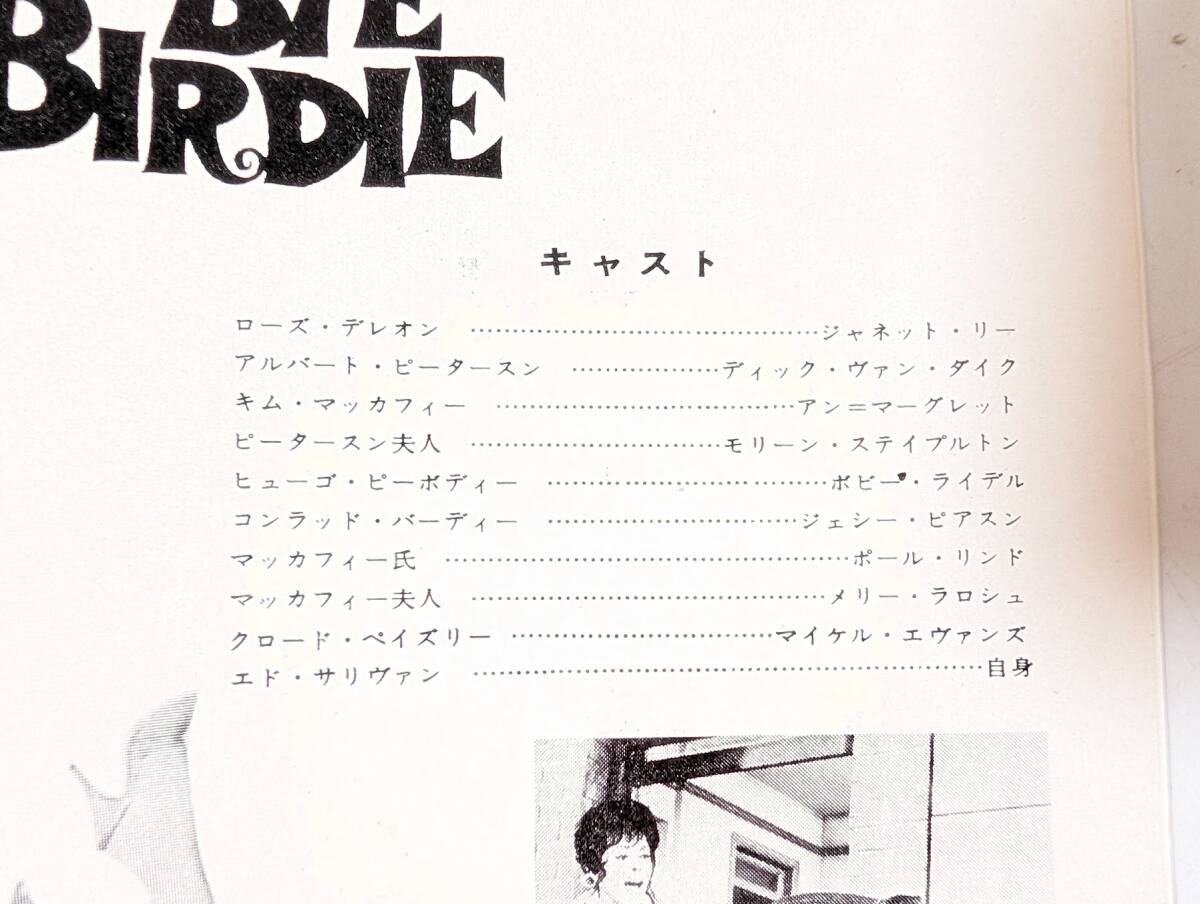 BIE
BIRDIE
キャスト
ローズ・デレオン ……………………………………ジャネット・リー
アルバート・ピータースン ………………ディック・ヴァン・ダイク
キム・マッカフィー ………………………………アン＝マーグレット
ピータースン夫人 …………………………モリーン・ステイプルトン
ヒューゴ・ピーボディー ……………………………ボビー・ライデル
コンラッド・バーディー …………………………ジェシー・ピアスン
マッカフィー氏 …………………………………………ポール・リンド
マッカフィー夫人 ……………………………………メリー・ラロシュ
クロード・ペイズリー …………………………マイケル・エヴァンズ
エド・サリヴァン ……………………………………………………自身